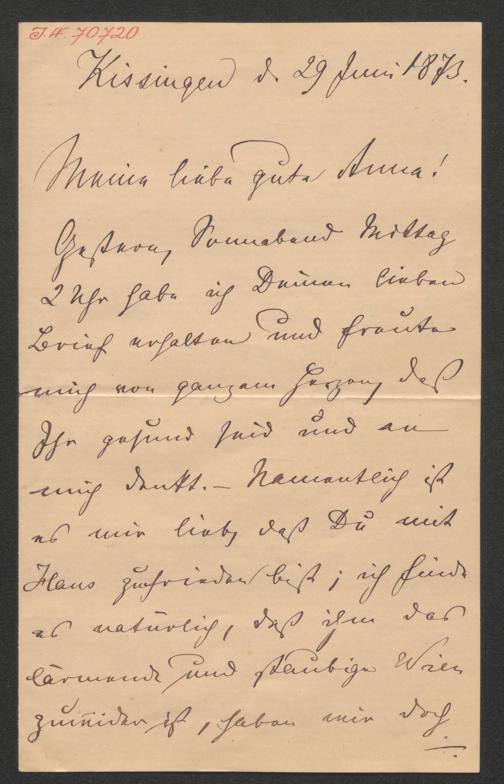 J.N. 70720
Kissingen d. 29 Juni 1873.
Meine liebe gute Anna!
Gestern, Sonnabend Mittag
2 Uhr habe ich Deinen lieben
Brief erhalten und freute
mich von ganzem Herzen, daß
Ihr gesund seid und an
mich denkt. – Namentlich ist
es mir lieb, daß Du mit
Hans zufrieden bist; ich finde
es natürlich, daß ihm das
lärmende und staubige Wien
zuwider ist, haben wir doch